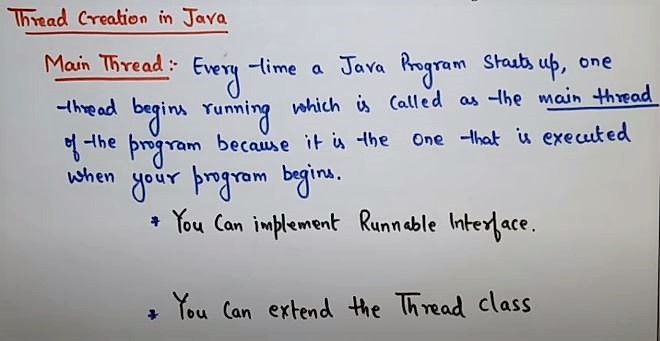 Thread Creation in Java
Main Thread :- Every time a Java Program starts up, one
thread begins running which is called as the main thread
of the program because it is the one that is executed
when your program begins.
* You Can implement Runnable Interface.
* You Can extend the Thread class